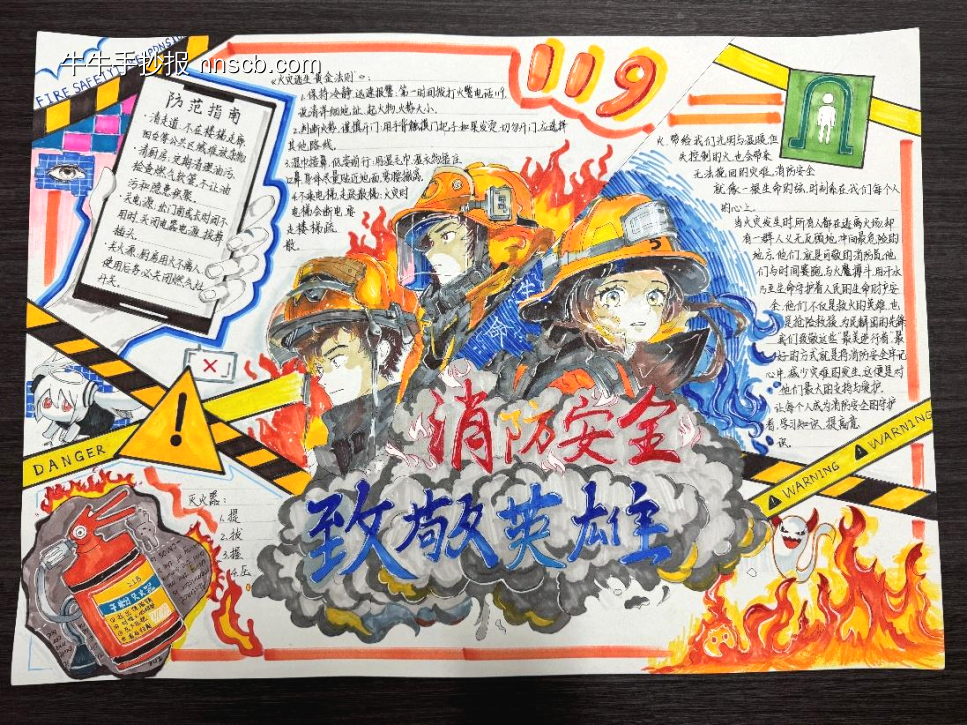 牛牛手抄报 nnscb.com
FIRE SAFETY
119
防范指南
·清走道:不在楼梯走廊
阳台等公共区域堆放杂物
·清厨房:定期清理油污,
检查燃气软管,不让油
污和隐患积聚。
·关电源:出门前或长时间不
用时,关闭电器电源,拔掉
插头。
·关火源:厨房用火不离人,
使用后务必关闭燃气灶
开关。
《火灾逃生黄金法则》:
1.保持冷静,迅速报警:第一时间拨打火警电话119,
说清详细地址、起火物、火势大小。
2.判断火势,谨慎开门:用手背触摸门把手,如果发烫,切勿开门,应选择
其他路线。
3.湿巾捂鼻,低姿前行:用湿毛巾、
4.不乘电梯,走疏散楼:火灾时
电梯会断电,应
走楼梯疏
散。
火,带给我们光明与温暖,但
失控制的火也会带来
无法挽回的灾难。消防安全
就像一根生命的弦,时刻系在我们每个人
的心上。
当火灾发生时,所有人都在逃离火场,却
有一群人义无反顾地,冲向最危险的
地方。他们就是可敬的消防员,他
们与时间赛跑,与火魔搏斗,用汗水
乃至生命守护着人民的生命财产安
全。他们不仅是救火的英雄,也
是抢险救援、为民解困的先锋
我们致敬这些"最美逆行者",最
好的方式就是将消防安全牢记
心中,减少灾难的发生,这便是对
他们最大的支持与爱护。
让每个人成为消防安全的守护
者,学习知识,提高意
识。
生
命
5
消防安全
致敬英雄
DANGER
WARNING
WARNING
灭火器:
1.提
2.拔
3.握
4.压
干粉灭火器